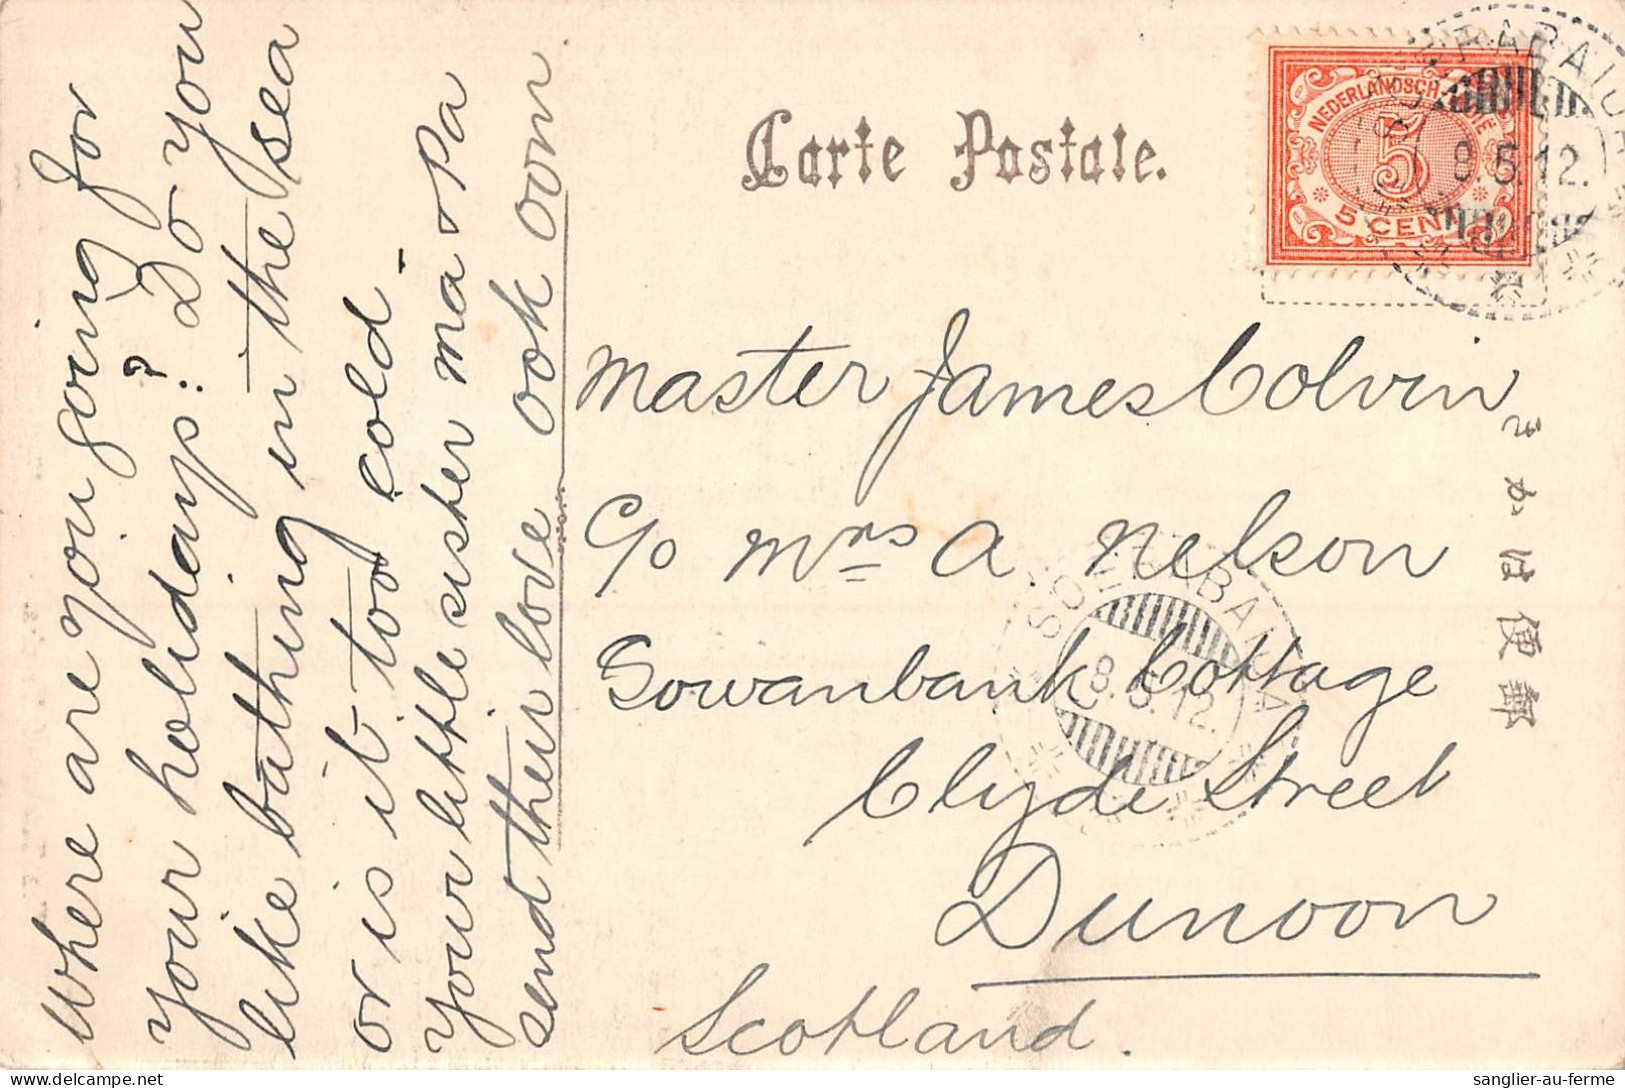 Where are you going for
your holidays? Do you
like bathing in the sea
or is it too cold -
your little sister ma & Pa
send their love ook oom
Carte Postale.
NEDERLANDSCH-
5
5 CENT
8.5.12.
Master James Colvin
c/o Mrs A Nelson
Gowanbank Cottage
Clyde Street
Dunoon
Scotland.
SOERABAIJA
8.5.12.
きかは便郵
sanglier-au-ferme